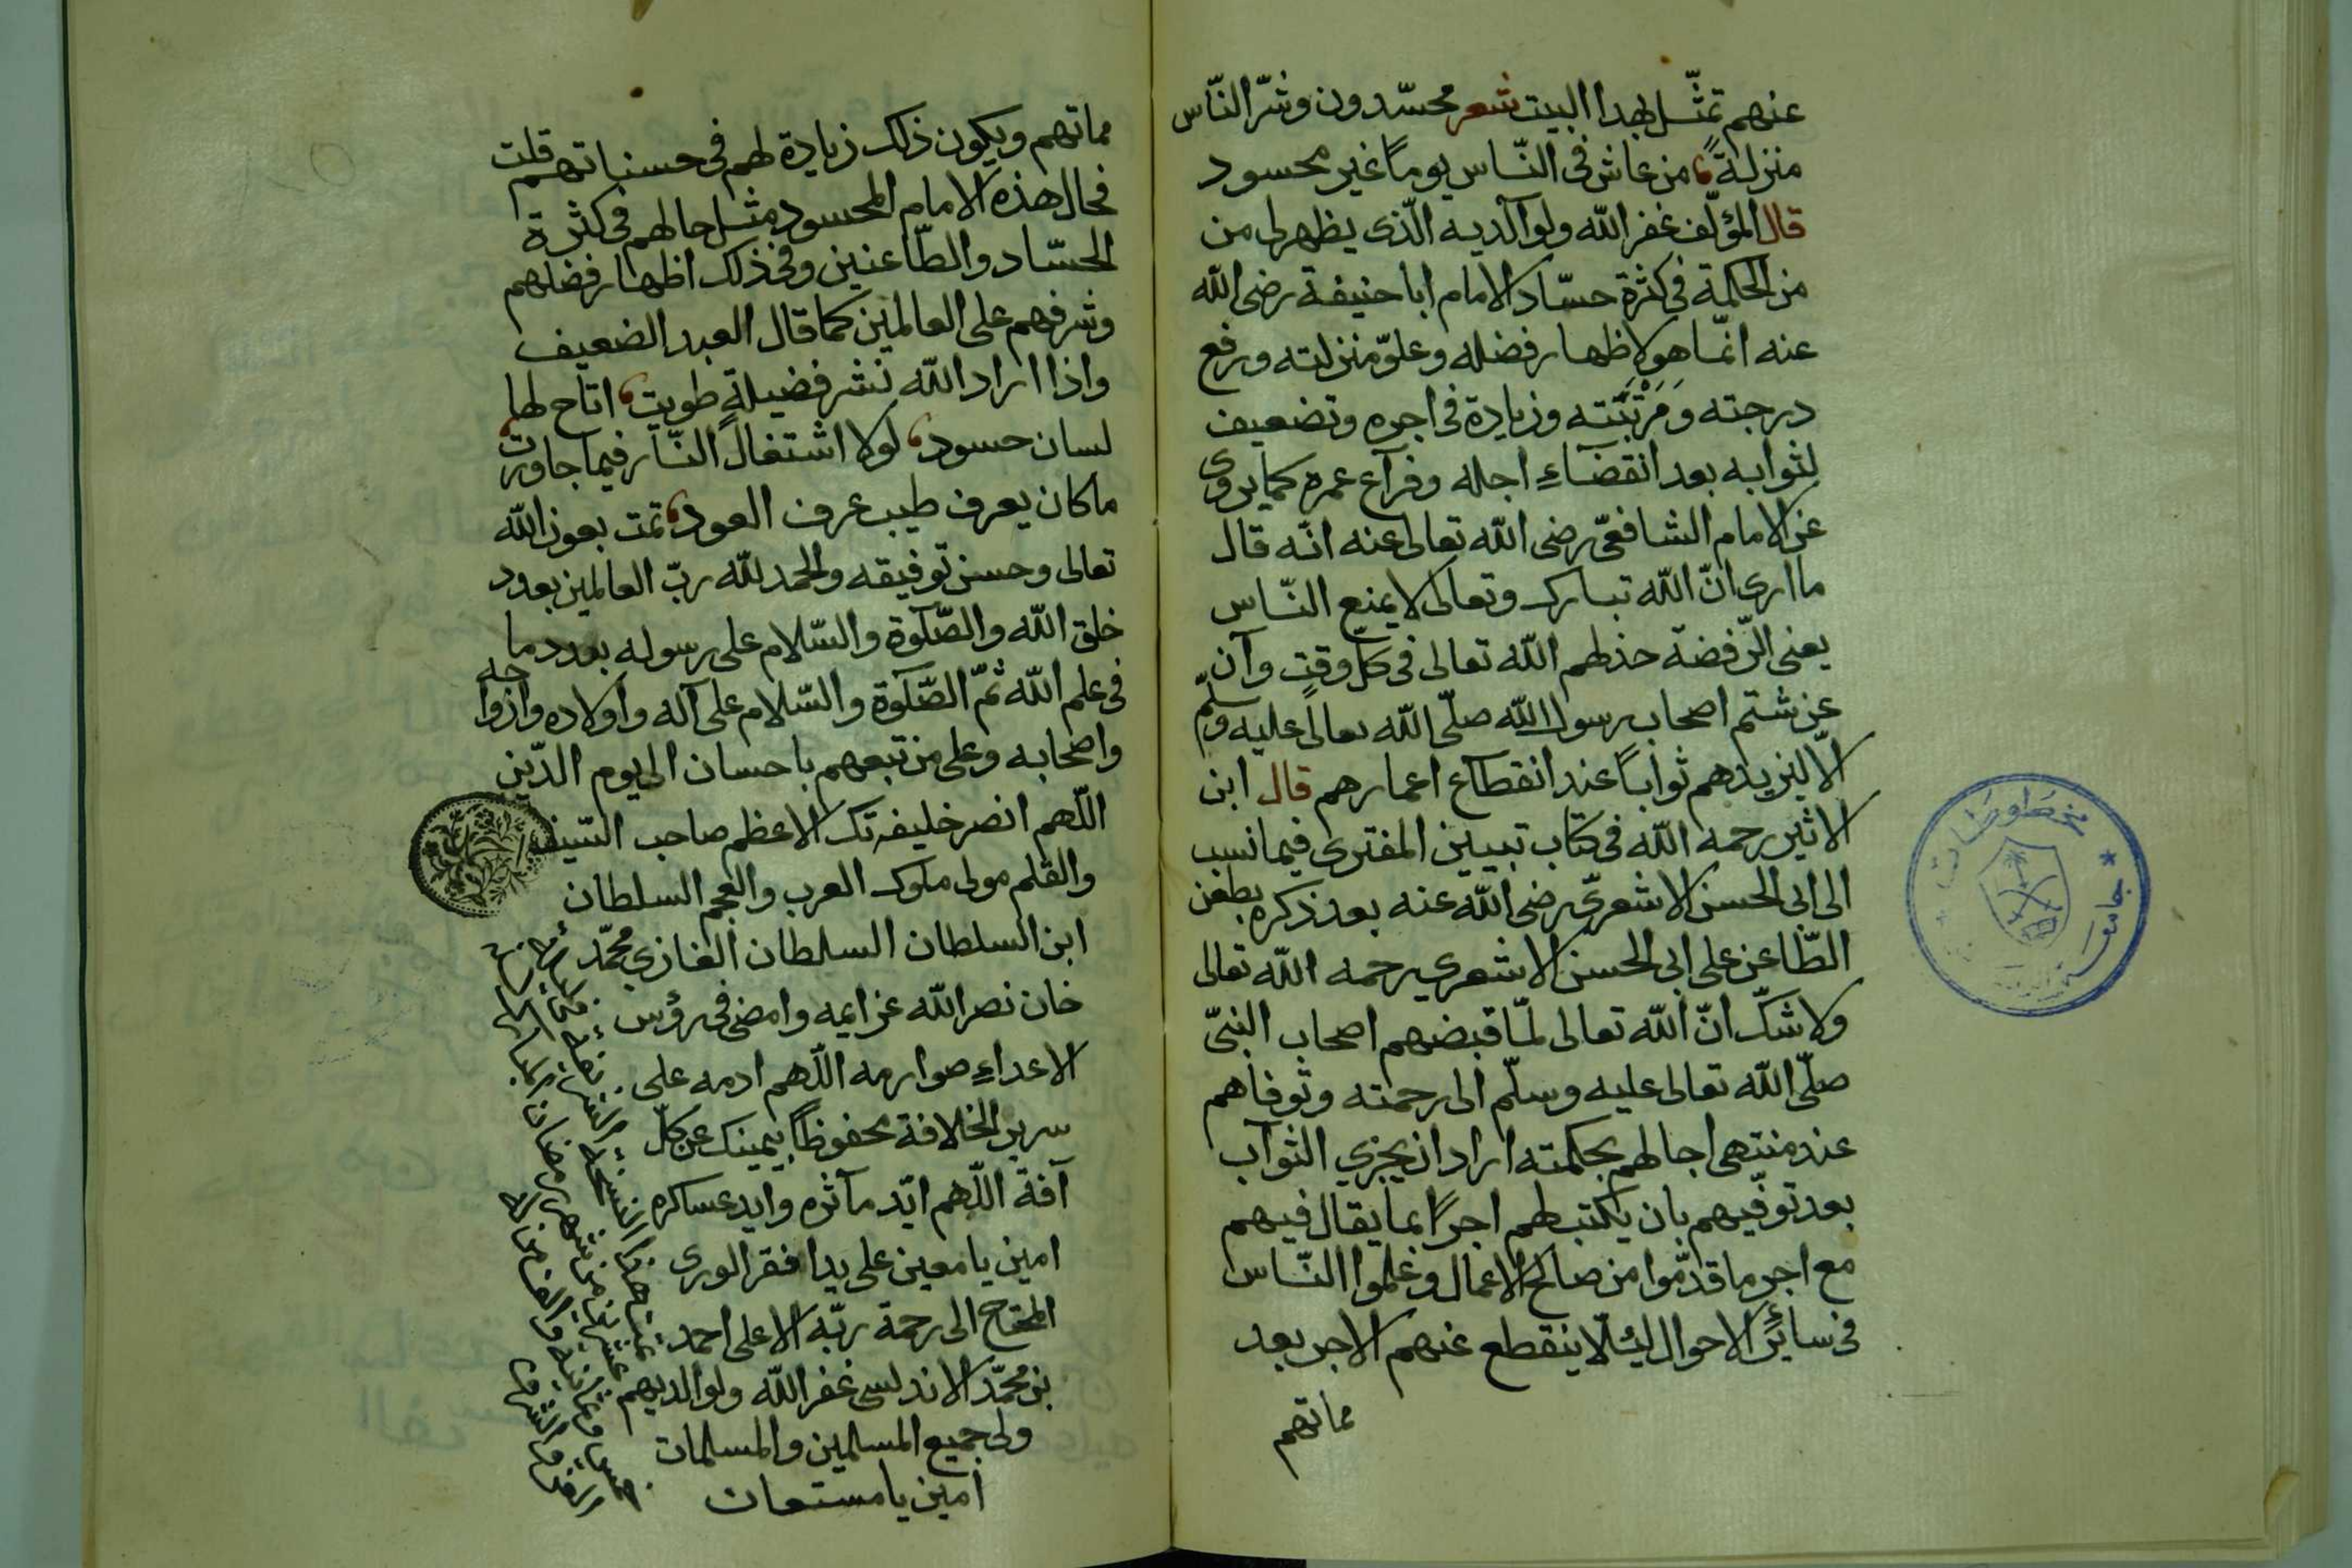 عنهم تمثّل بهذا البيت شعر محسّدون وشرّ النّاس
منزلةً من عاش فى النّاس يوماً غير محسود
قال المؤلّف غفر الله ولوالديه الّذى يظهر لى من
من الحكمة فى كثرة حسّاد الامام ابا حنيفة رضى الله
عنه انّما هو لاظهار فضله وعلوّ منزلته ورفع
درجته ومرتبته وزيادة فى اجره وتضعيف
لثوابه بعد انقضاءِ اجله وفراع عمره كما يروى
عن الامام الشافعىّ رضى الله تعالى عنه انّه قال
ما ارى انّ الله تبارك وتعالى لا يمنع النّاس
يعنى الرّفضة خذلهم الله تعالى فى كل وقتٍ وآن
عن شتم اصحاب رسول الله صلّى الله تعالى عليه وسلّم
الّا ليزيدهم ثواباً عند انقطاع اعمارهم قال ابن
الاثير رحمه الله فى كتاب تبيين المفترى فيما نسب
الى ابى الحسن الاشعرىّ رضى الله عنه بعد ذكره بطعن
الطّاعن على ابى الحسن الاشعرى رحمه الله تعالى
ولا شكّ انّ الله تعالى لمّا قبضهم اصحاب النبىّ
صلّى الله تعالى عليه وسلّم الى رحمته وتوفاهم
عند منتهى اجالهم بحكمته اراد ان يجزي الثواب
بعد توفّيهم بان يكتب لهم اجراً بما يقال فيهم
مع اجر ما قدّموا من صالح الاعمال وعلموا النّاس
فى سائر الاحوال لئلّا ينقطع عنهم الاجر بعد
مماتهم
مماتهم ويكون ذلك زيادة لهم فى حسناتهم قلت
فحال هذه الامام المحسود مثل حالهم فى كثرة
الحسّاد والطّاعنين وفى ذلك اظهار فضلهم
وشرفهم على العالمين كما قال العبد الضعيف
واذا اراد الله نشر فضيلةٍ طويت اتاح لها
لسان حسود لولا اشتعال النّار فيما جاورت
ما كان يعرف طيب عرف العود تمت بعون الله
تعالى وحسن توفيقه والحمد لله ربّ العالمين بعدد
خلق الله والصّلوة والسّلام على رسوله بعدد ما
فى علم الله ثمّ الصّلوة والسّلام على آله واولاده وازواجه
واصحابه وعلى من تبعهم باحسان الى يوم الدّين
اللّهم انصر خليفتك الاعظم صاحب السّيف
والقلم مولى ملوك العرب والعجم السلطان
ابن السلطان السلطان الغازي محمّد
خان نصر الله عزايمه وامضى فى رؤس
الاعداءِ صوارمه اللّهم ادمه على
سرير الخلافة محفوظاً بيمينك عن كلّ
آفة اللّهم ايّد مآثره وايد عساكره
امين يا معين على يد افقر الورى
المحتاج الى رحمة ربّه الاعلى احمد
بن محمّد الاندلسى غفر الله ولوالديهم
ولى جميع المسلمين والمسلمات
امين يا مستعان
مخطوطات
جامعة